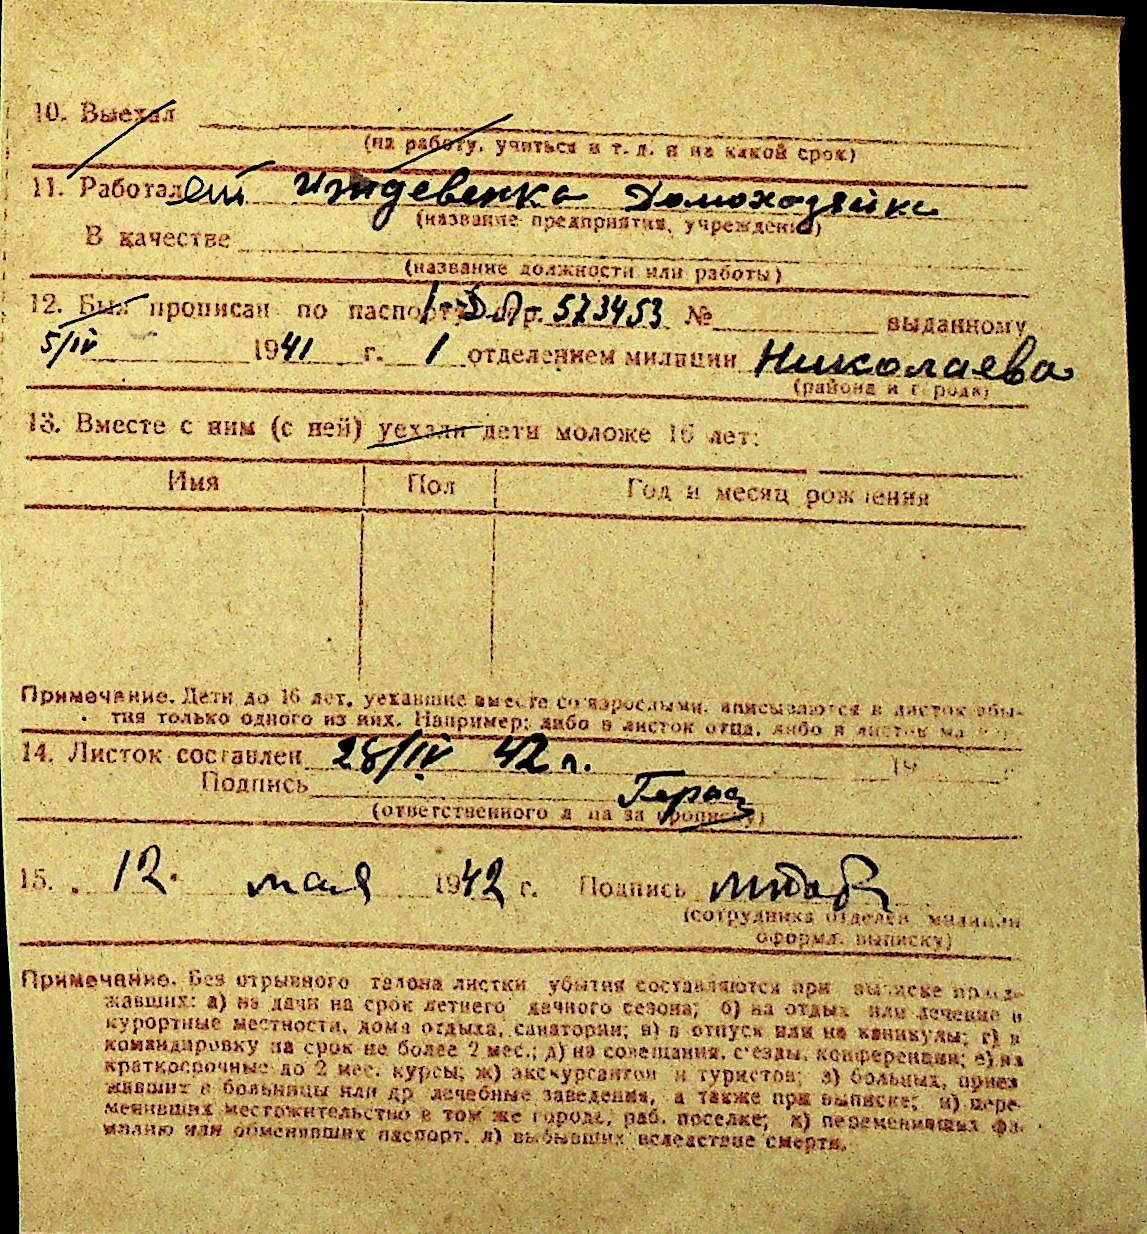 10. Выехал
(на работу, учиться и т. д. и на какой срок)
11. Работает иждевенка Домохозяйка
(название предприятия, учреждения)
В качестве
(название должности или работы)
12. Был прописан по паспорту 573453 № выданному
5/IV 1941 г. 1 отделением милиции Николаева
(района и города)
13. Вместе с ним (с ней) уехали дети моложе 16 лет:
Имя Пол Год и месяц рождения
Примечание. Дети до 16 лет, уехавшие вместе со взрослыми, вписываются в листок убы-
тия только одного из них. Например: либо в листок отца, либо в листок
14. Листок составлен 28/IV 42 г. 19 г.
Подпись
(ответственного лица за прописку)
15. 12. мая 1942 г. Подпись
(сотрудника отделен. милиции
оформл. выписку)
Примечание. Без отрывного талона листки убытия составляются при выписке приез-
жавших: а) на дачи на срок летнего дачного сезона; б) на отдых или лечение в
курортные местности, дома отдыха, санатории; в) в отпуск или на каникулы; г) в
командировку на срок не более 2 мес.; д) на совещания, съезды, конференции; е) на
краткосрочные до 2 мес. курсы; ж) экскурсантов и туристов; з) больных, приез
жавших в больницы или др лечебные заведения, а также при выписке; и) пере-
менивших местожительство в том же городе, раб. поселке; к) переменивших фа-
милию или обменявших паспорт. л) выбывших вследствие смерти.